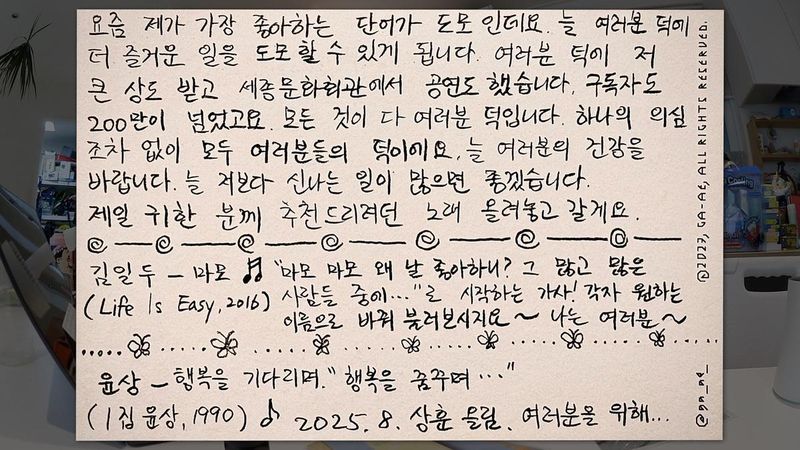 요즘 제가 가장 좋아하는 단어가 도모인데요. 늘 여러분 덕에
더 즐거운 일을 도모할 수 있게 됩니다. 여러분 덕에 저
큰 상도 받고 세종문화회관에서 공연도 했습니다. 구독자도
200만이 넘었고요. 모든 것이 다 여러분 덕입니다. 하나의 의심
조차 없이 모두 여러분들의 덕이에요. 늘 여러분의 건강을
바랍니다. 늘 저보다 신나는 일이 많으면 좋겠습니다.
제일 귀한 분께 추천드리려던 노래 올려놓고 갈게요.
김일두 - 마모 ♫ "마모 마모 왜 날 좋아하니? 그 많고 많은
(Life Is Easy, 2016) 사람들 중에..."로 시작하는 가사! 각자 원하는
이름으로 바꿔 불러보시지요~ 나는 여러분~
윤상 - 행복을 기다리며. "행복을 꿈꾸며..."
(1집 윤상, 1990) ♪ 2025. 8. 상훈 올림. 여러분을 위해...
@2023, GA-AG, ALL RIGHTS RESERVED.